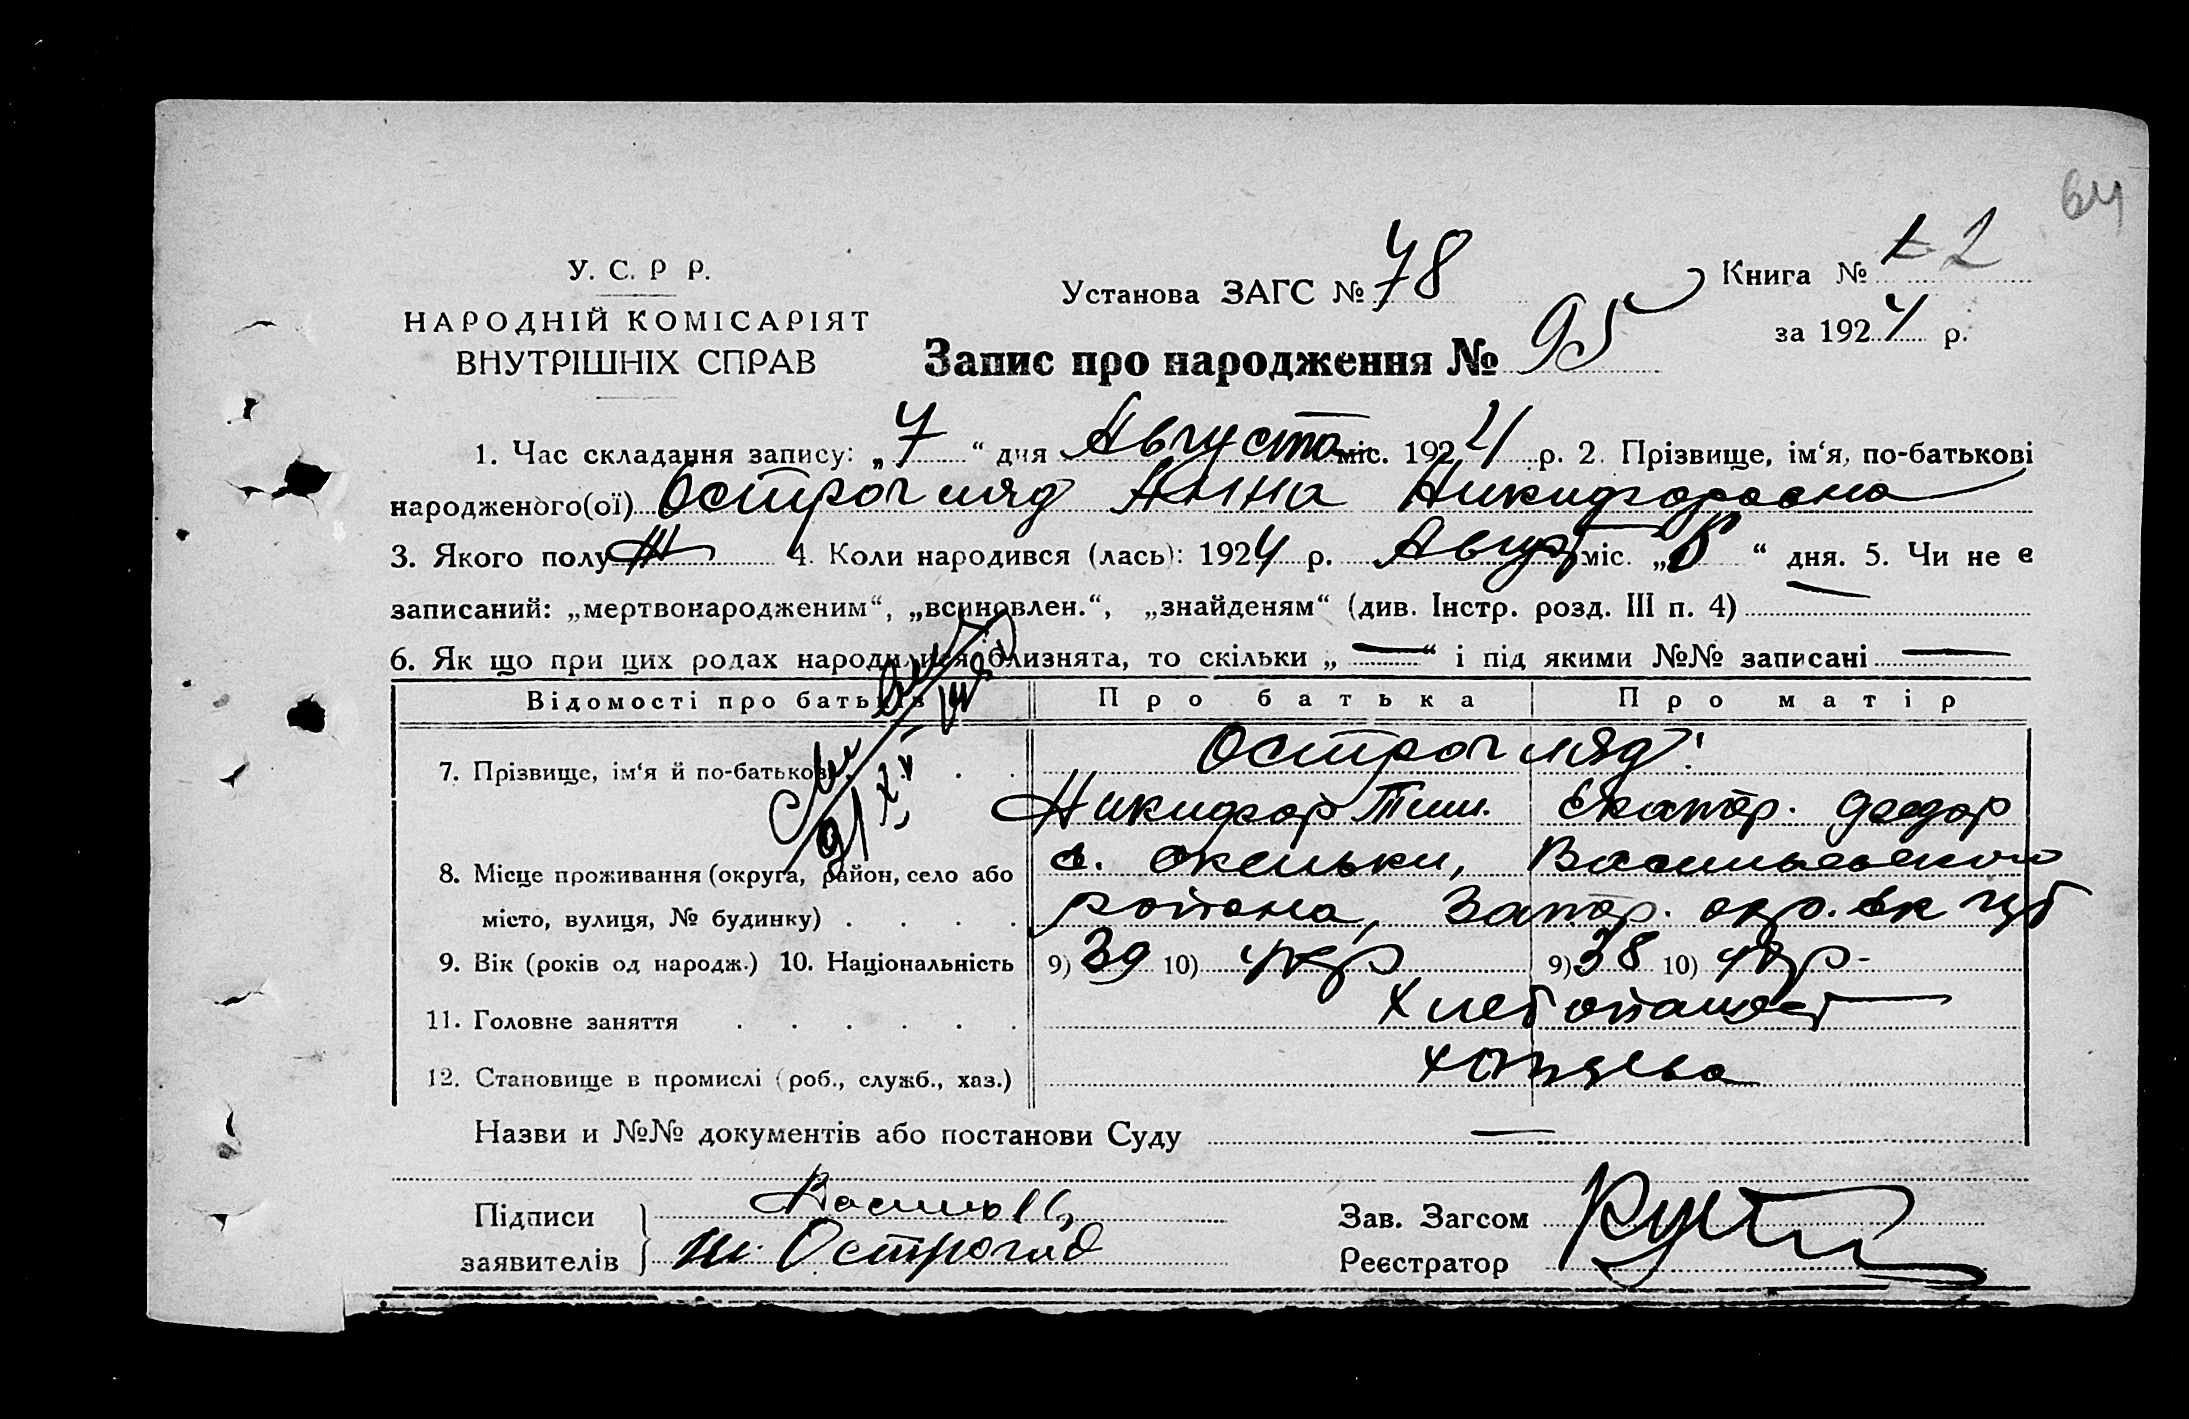 64
У. С. Р Р.
НАРОДНІЙ КОМІСАРІЯТ
ВНУТРІШНІХ СПРАВ
Установа ЗАГС № 78
Книга № 2
за 1924 р.
Запис про народження № 95
1. Час складання запису: „7“ дня Августа міс. 1924 р. 2. Прізвище, ім‘я, по-батькові
народженого(ої) Остроглляд Анна Никифоровна
3. Якого полу Ж 4. Коли народився (лась): 1924 р. Август міс. „ “ дня. 5. Чи не є
записаний: „мертвонародженим“, „всиновлен.“, „знайденям“ (див. Інстр. розд. III п. 4) —
6. Як що при цих родах народилися близнята, то скільки „—“ і під якими №№ записані —
Відомості про батьків Про батька Про матір
7. Прізвище, ім‘я й по-батькові Остроглляд
Никифор Тим. Екатер. Федор
8. Місце проживання (округа, район, село або с. Скельки, Васильевского
місто, вулиця, № будинку) района, Запор. окр.
9. Вік (років од народж.) 10. Національність 9) 39 10) укр 9) 38 10) укр-
11. Головне заняття Хлебопашест
12. Становище в промислі (роб., служб., хаз.) хозяева
Назви и №№ документів або постанови Суду —
Підписи
заявителів Остроглад
Зав. Загсом
Реєстратор